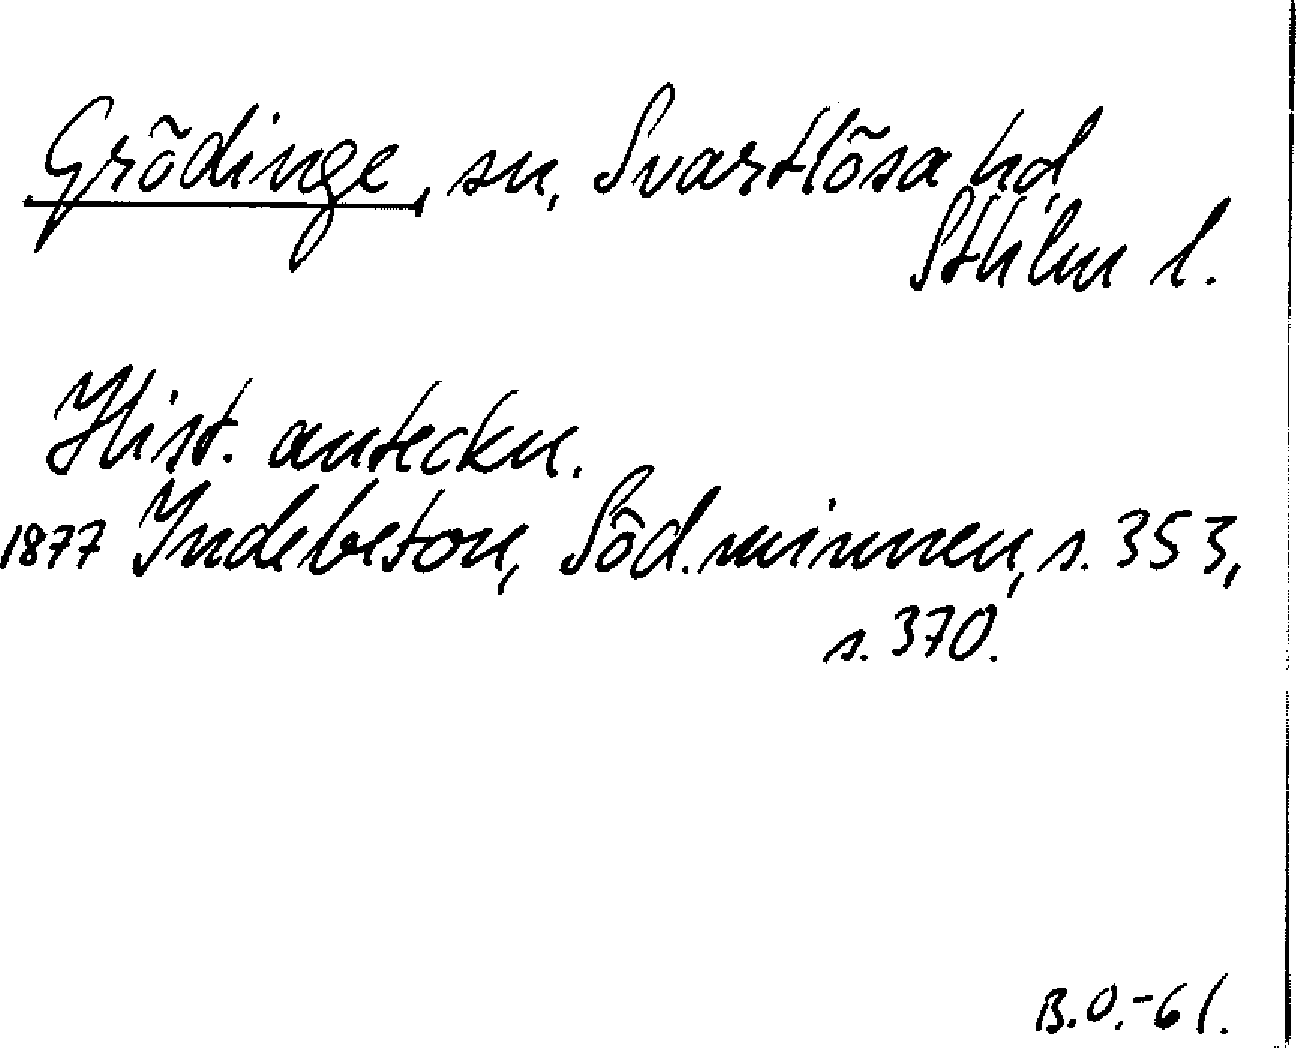 Grödinge, sn, Svartlösa hd,
Sthlm l.
Hist. anteckn.
1877 Indebetou, Söd. minnen, s. 353,
s. 370.
B.O.-61.